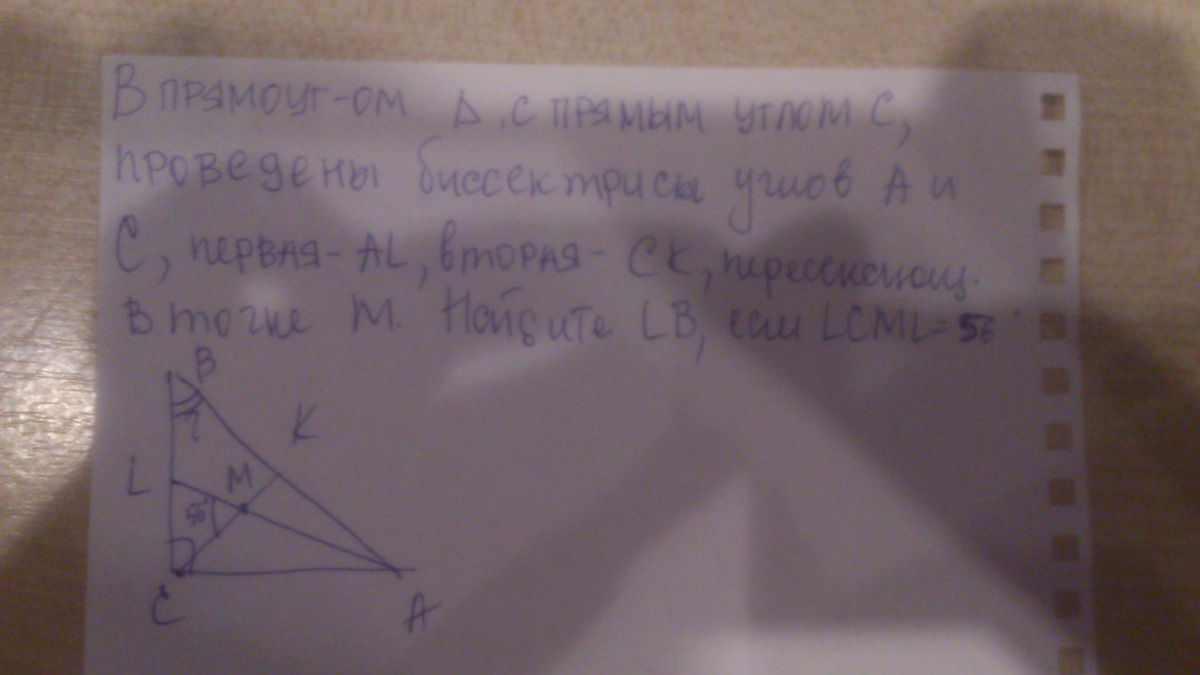 В прямоуг-ом Δ, с прямым углом С,
проведены биссектрисы углов А и
С, первая - AL, вторая - СК, пересекающ.
в точке М. Найдите LB, если LCML = 56°
B
?
K
L
M
56°
C
A